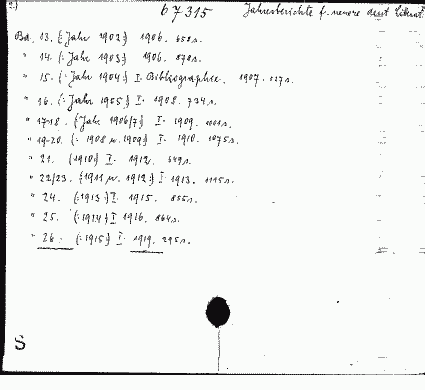 2.) 67315 Jahresberichte f. neuere deut. Literat
Bd. 13. (: Jahr 1902) 1906. 658 s.
" 14. (: Jahr 1903) 1906. 878 s.
" 15. (: Jahr 1904) I. Bibliographie. 1907. 127 s.
" 16. (: Jahr 1905) I. 1908. 734 s.
" 17-18. (Jahr 1906/7) I. 1909. s.
" 19-20. (: 1908 u. 1909) I. 1910. 1075 s.
" 21. (1910) I. 1912. 549 s.
" 22/23. (1911 u. 1912:) I. 1913. 1115 s.
" 24. (:1913) I. 1915. 855 s.
" 25. (:1914) I 1916. 864 s.
" 26. (:1915) I. 1919. 295 s.
S